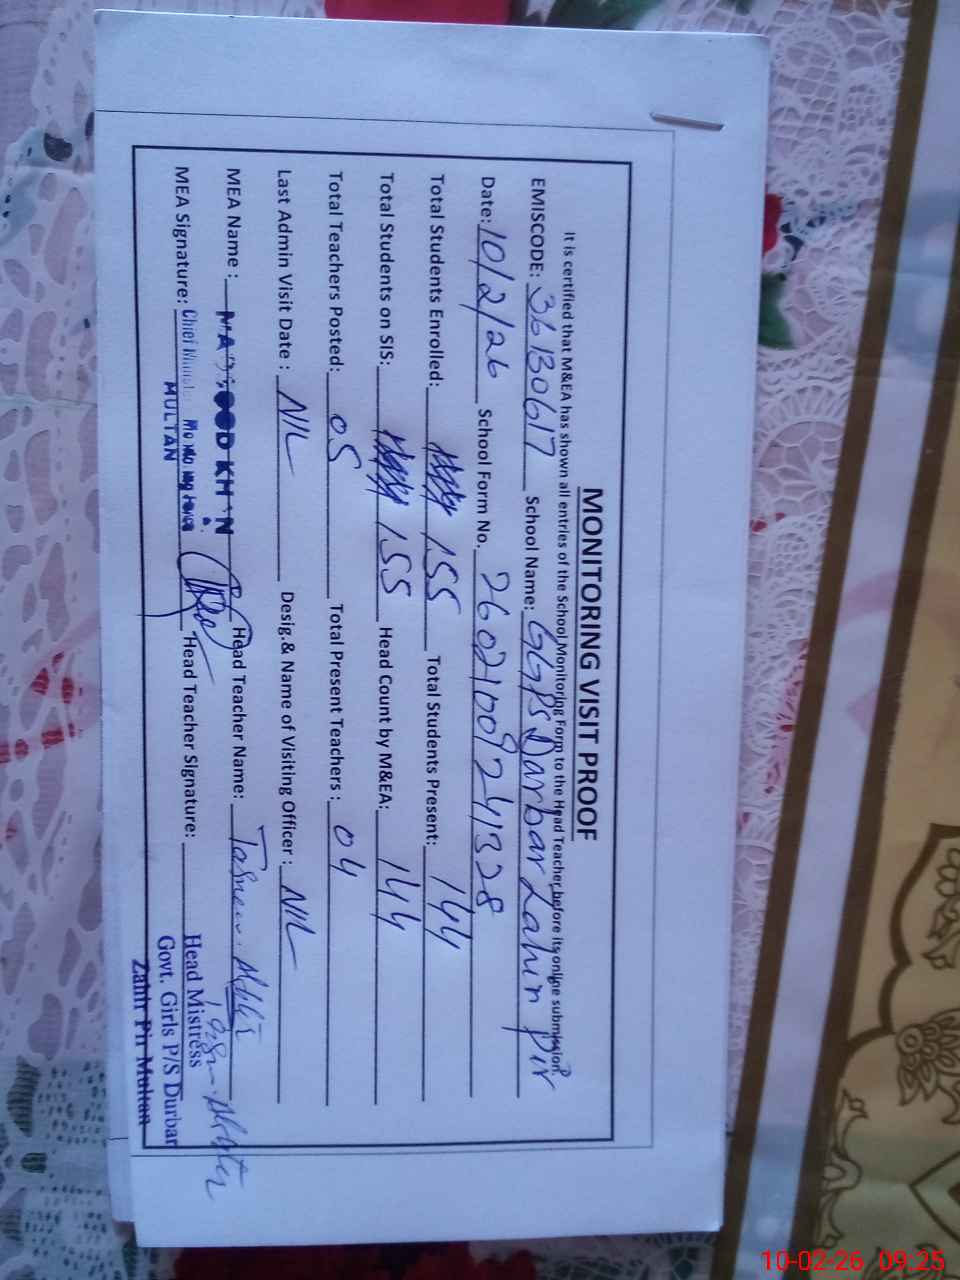 MONITORING VISIT PROOF
It is certified that M&EA has shown all entries of the School Monitoring Form to the Head Teacher before its online submission.
EMISCODE: 36130617 School Name: GGPS Darbar Zahir Pir
Date: 10/2/26 School Form No. 26021009241328
Total Students Enrolled: 155 Total Students Present: 144
Total Students on SIS: 155 Head Count by M&EA: 144
Total Teachers Posted: 05 Total Present Teachers : 04
Last Admin Visit Date : NIL Desig.& Name of Visiting Officer : NIL
MEA Name : KHAN Head Teacher Name:
MEA Signature: Chief Head Teacher Signature:
MULTAN
Head Mistress
Govt. Girls P/S Durbar
Zahir Pir Multan
10-02-26 09:25